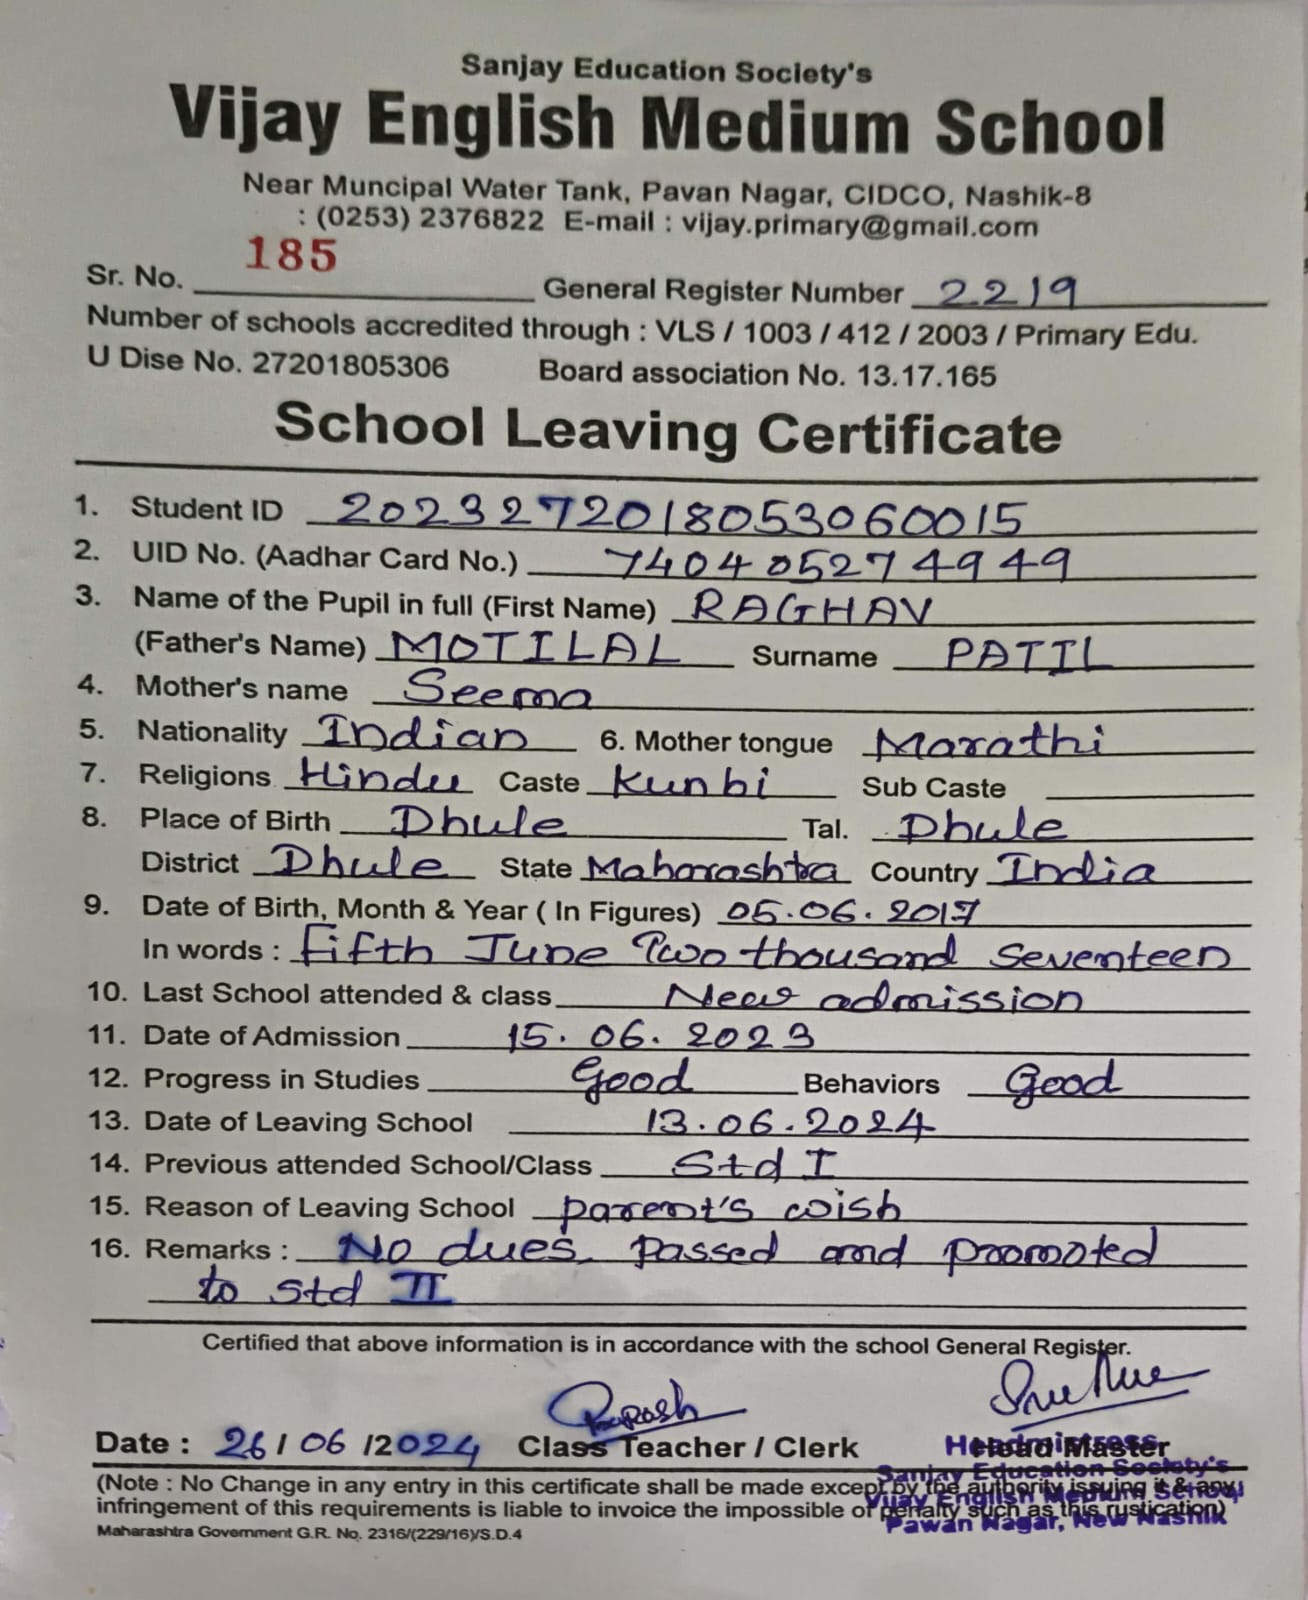 Sanjay Education Society's
Vijay English Medium School
Near Muncipal Water Tank, Pavan Nagar, CIDCO, Nashik-8
: (0253) 2376822 E-mail : vijay.primary@gmail.com
Sr. No. 185 General Register Number 2219
Number of schools accredited through : VLS / 1003 / 412 / 2003 / Primary Edu.
U Dise No. 27201805306 Board association No. 13.17.165
School Leaving Certificate
1. Student ID 2023272018053060015
2. UID No. (Aadhar Card No.) 740405274949
3. Name of the Pupil in full (First Name) RAGHAV
(Father's Name) MOTILAL Surname PATIL
4. Mother's name Seema
5. Nationality Indian 6. Mother tongue Marathi
7. Religions Hindu Caste Kunbi Sub Caste
8. Place of Birth Dhule Tal. Dhule
District Dhule State Maharashtra Country India
9. Date of Birth, Month & Year ( In Figures) 05.06.2017
In words : Fifth June Two thousand Seventeen
10. Last School attended & class New admission
11. Date of Admission 15.06.2023
12. Progress in Studies Good Behaviors Good
13. Date of Leaving School 13.06.2024
14. Previous attended School/Class Std I
15. Reason of Leaving School parent's wish
16. Remarks : No dues. Passed and promoted
to Std II
Certified that above information is in accordance with the school General Register.
Date : 26/06/2024 Class Teacher / Clerk Head Master
Headmistress
Sanjay Education Society's
Vijay English Medium School
Pawan Nagar, New Nashik
(Note : No Change in any entry in this certificate shall be made except by the authority issuing it & any
infringement of this requirements is liable to invoice the impossible of penalty such as this rustication)
Maharashtra Government G.R. No. 2316/(229/16)/S.D.4